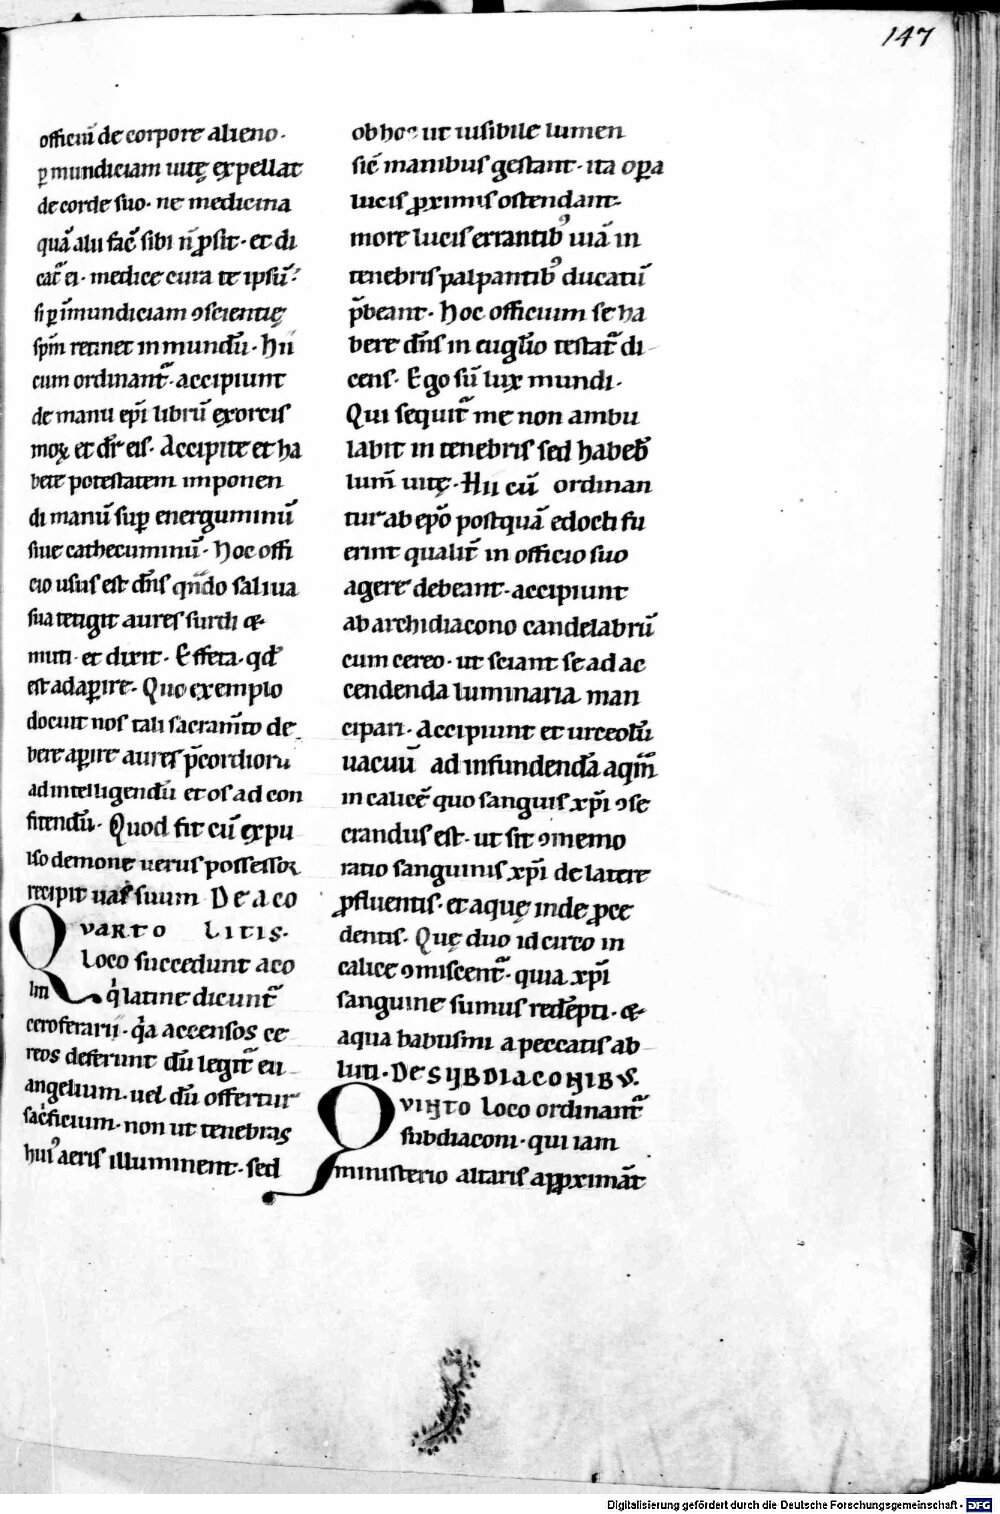 147
officiū de corpore alieno·
ꝑ mundiciam uitę expellat
de corde suo· ne medicina
quā alii fac̄ sibi n̄ ꝓsit· et di
cat̄ ei· medice cura te ipsū·
si ꝑ īmundiciam ꝯscientię
sp̄m retinet inmundū· Hii
cum ordinant̄· accipiunt
de manu ep̄i librū exorcis
moꝝ et dr̄ eis· Accipite et ha
bete potestatem imponen
di manū suꝑ energuminū
siue cathecuminū· Hoc offi
cio usus est dn̄s qn̄do saliua
sua tetigit aures surdi &
muti· et dixit· Effeta· qd̄
est adaꝑire· Quo exemplo
docuit nos tali sacram̄to de
bere aꝑire aures p̄cordioru
ad intelligendū et os ad con
fitendū· Quod fit cū expu
lso demone uerus possessor
recipit uas suum DE ACO
QVARTO LITIS·
loco succedunt aco
liti q̇ latine dicunt̄
ceroferarii· q̇a accensos ce
reos deferunt dū legit̄ eu
angelium· uel dū offertur
sac̓ficium· non ut tenebras
huiꝰ aeris illuminent· sed
ob hoc ut uisibile lumen
sic̄ manibus gestant· ita oꝑa
lucis ꝓximis ostendant·
more lucis errantibꝰ uiā in
tenebris palpantibꝰ ducatū
p̄beant· Hoc officium se ha
bere dn̄s in euglīo testat̄ di
cens· Ego sū lux mundi·
Qui sequit̄ me non ambu
labit in tenebris sed habeb̄
lum̄ uitę· Hii cū ordinan
tur ab ep̄o postquā edocti fu
erint qualit̄ in officio suo
agere debeant· accipiunt
ab archidiacono candelabrū
cum cereo· ut sciant se ad ac
cendenda luminaria man
cipari· Accipiunt et urceolū
uacuū ad infundendā aqm̄
in calicē quo sanguis xp̄i ꝯse
crandus est· ut sit ꝯmemo
ratio sanguinis xp̄i de latere
ꝓfluentis· et aquę inde ꝓce
dentis· Quę duo idcirco in
calice ꝯmiscent̄· quia xp̄i
sanguine sumus redēpti· &
aqua babtismi a peccatis ab
luti· DE SUBDIACONIBVS.
QVINTO loco ordinant̄
subdiaconi· qui iam
ministerio altaris apꝓximāt
Digitalisierung gefördert durch die Deutsche Forschungsgemeinschaft - DFG